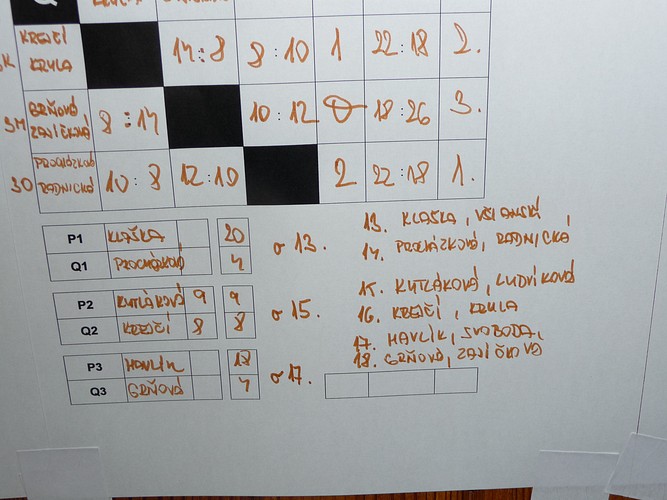 Q
K KREJČÍ KRULA 14:8 8:10 1 22:18 2.
3M GRŇOVÁ ZAVÍČKOVÁ 8:14 10:12 0 18:26 3.
3O PROCHÁZKOVÁ RADNICKÁ 10:8 12:10 2 22:18 1.
P1 KLAŠKA 20
Q1 PROCHÁZKOVÁ 4
o 13.
P2 KUTLÁKOVÁ 9 9
Q2 KREJČÍ 8 8
o 15.
P3 HAVLÍK 18
Q3 GRŇOVÁ 4
o 17.
13. KLAŠKA, VŠIANSKÝ
14. PROCHÁZKOVÁ, RADNICKÁ
15. KUTLÁKOVÁ, LUDVÍKOVÁ
16. KREJČÍ, KRULA
17. HAVLÍK, SVOBODA,
18. GRŇOVÁ, ZAVÍČKOVÁ